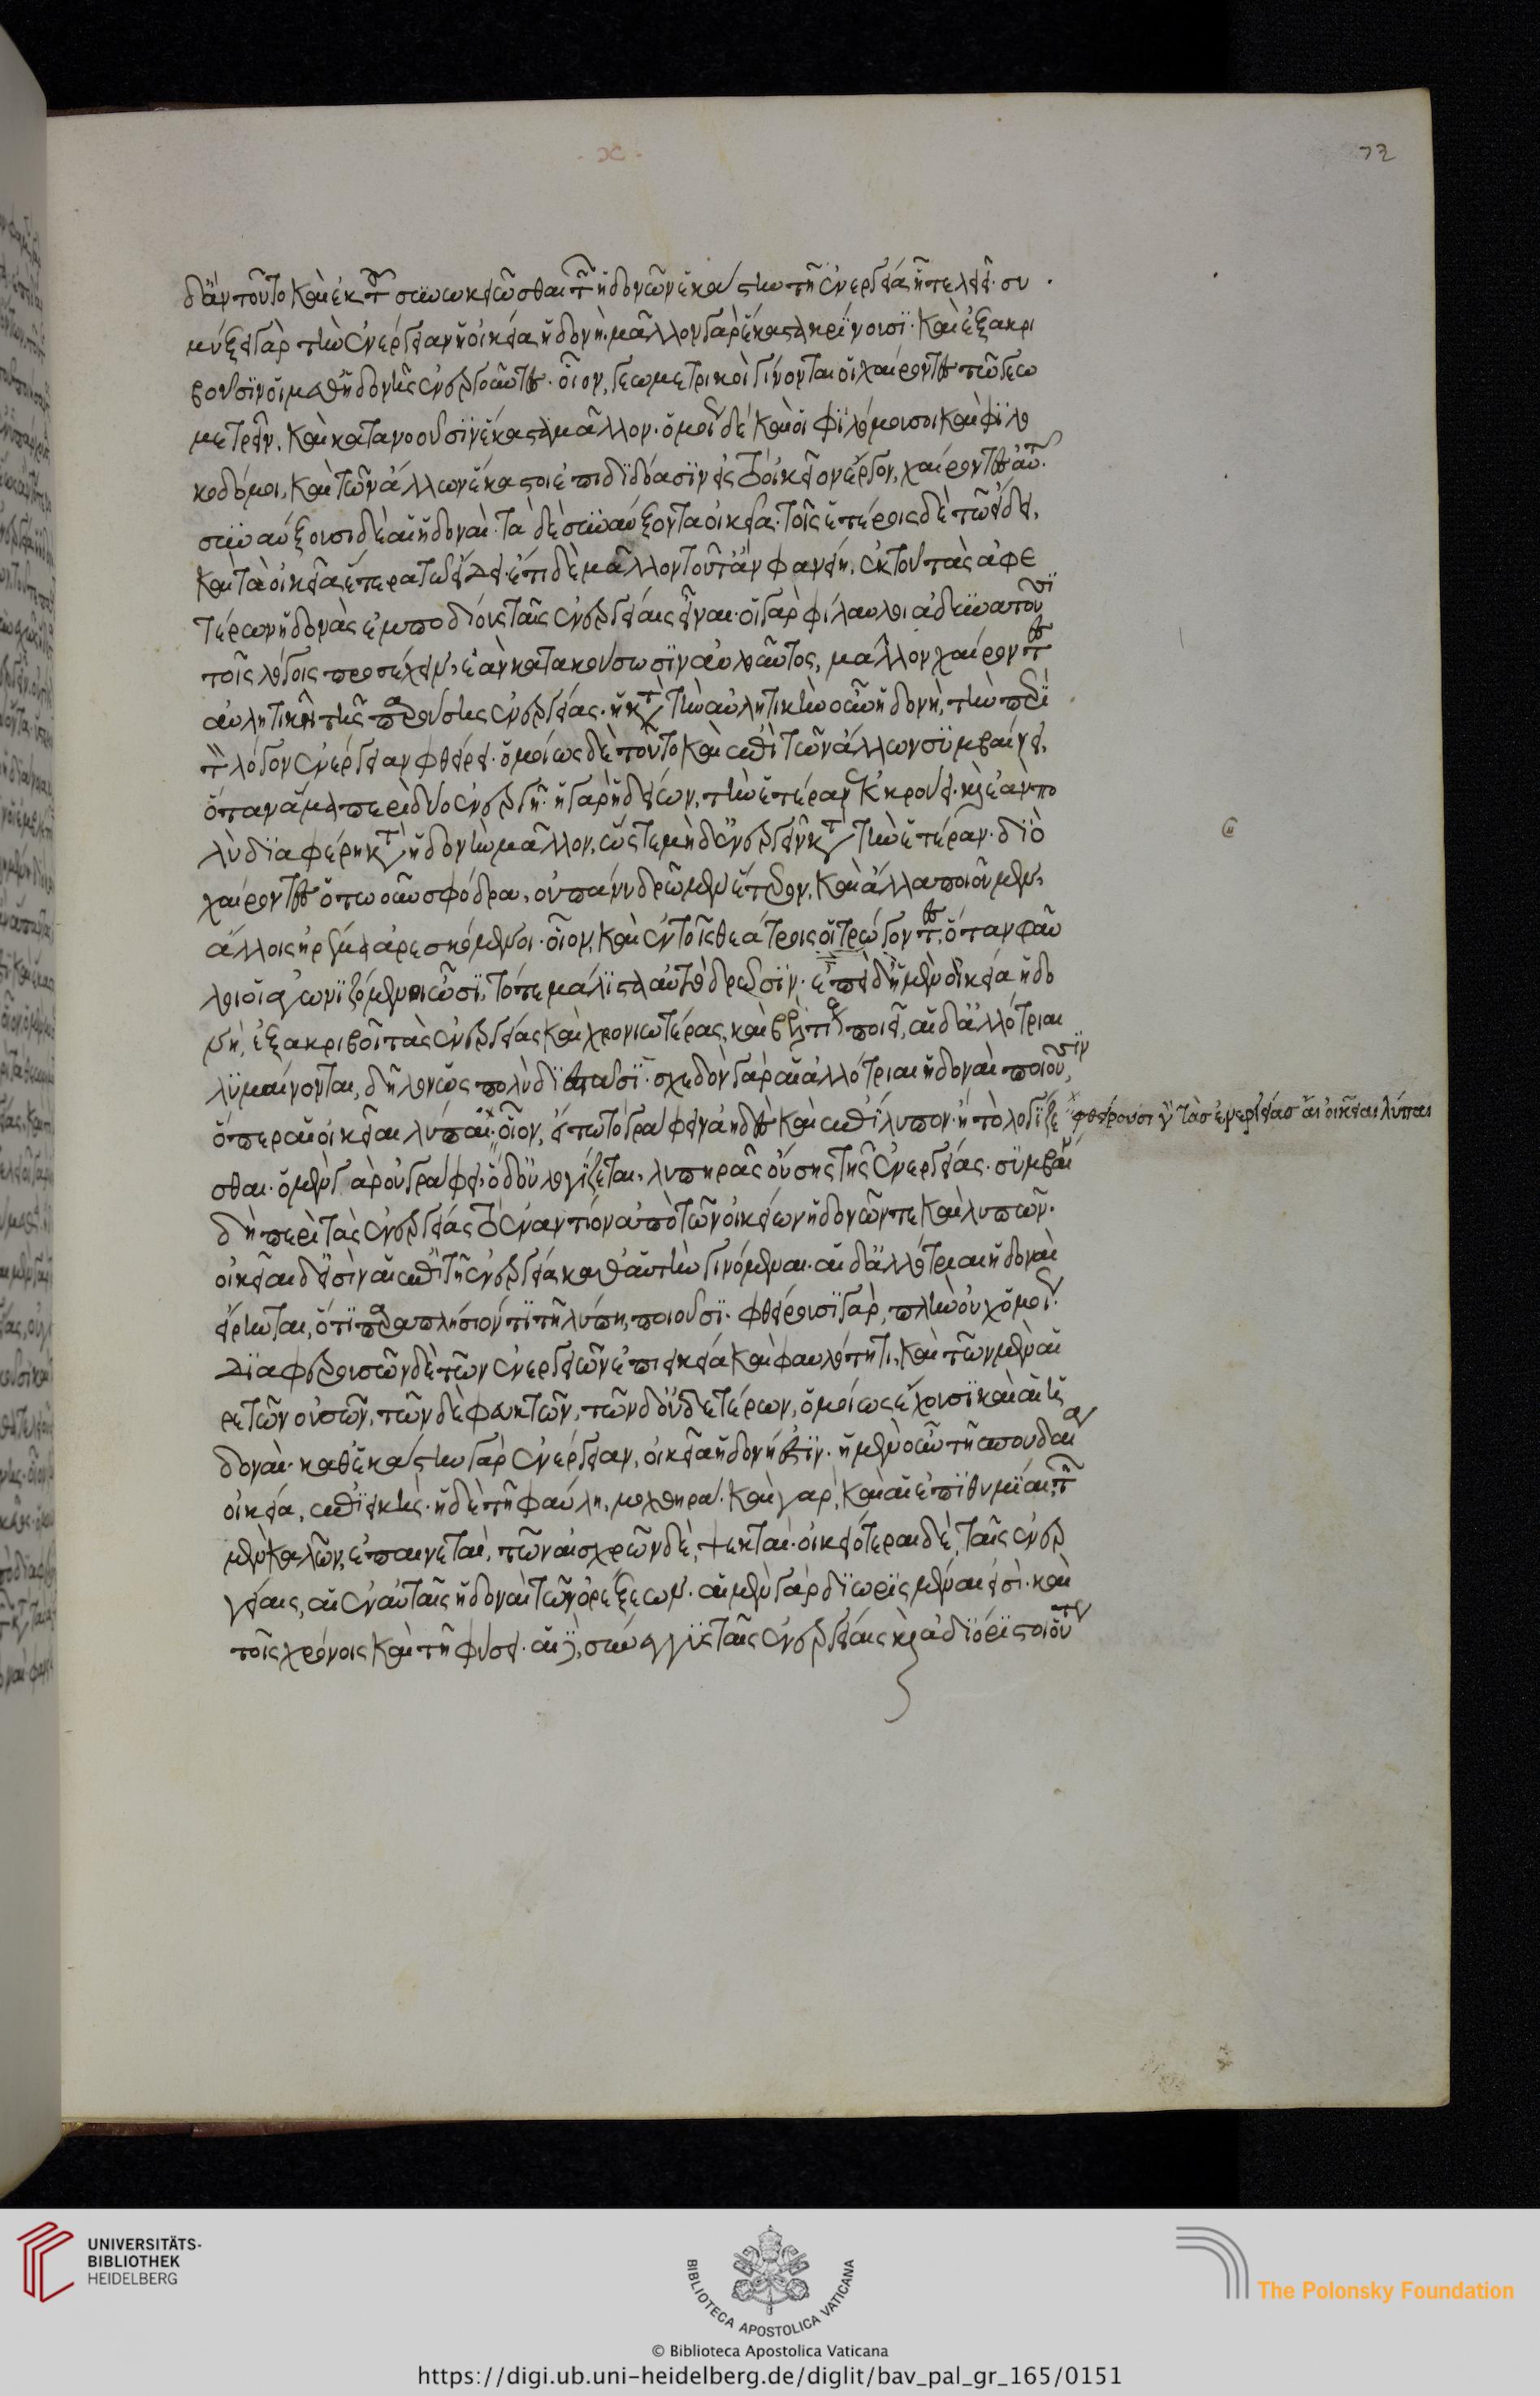 δ' ἂν τοῦτο καὶ ἐκ τοῦ συνωκειῶσθαι τῶν ἡδονῶν ἑκάστην τῇ ἐνεργεία ἣ τελεῖ· συ
ναύξει γὰρ τὴν ἐνέργειαν ἡ οἰκεία ἡδονή· μᾶλλον γὰρ ἕκαστα κρίνουσι· καὶ ἐξακρι
βοῦσιν οἱ μεθ' ἡδονῆς ἐνεργοῦντες· οἷον, γεωμετρικοὶ γίνονται οἱ χαίροντες τῷ γεω
μετρεῖν, καὶ κατανοοῦσιν ἕκαστα μᾶλλον· ὁμοίως δὲ καὶ οἱ φιλόμουσοι καὶ φιλο
κοδόμοι, καὶ τῶν ἄλλων ἕκαστοι ἐπιδιδόασιν εἰς τὸ οἰκεῖον ἔργον, χαίροντες αὐτῷ·
συναύξουσι δὲ αἱ ἡδοναί· τὰ δὲ συναύξοντα οἰκεῖα· τοῖς ἑτέροις δὲ τῷ εἴδει,
καὶ τὰ οἰκεῖα ἕτερα τῷ εἴδει· ἔτι δὲ μᾶλλον τοῦτ' ἂν φανείη, ἐκ τοῦ τὰς ἀφ' ἑ
τέρων ἡδονὰς ἐμποδίους ταῖς ἐνεργείαις εἶναι· οἱ γὰρ φίλαυλοι ἀδυνατοῦσι
τοῖς λόγοις προσέχειν, ἐὰν κατακούσωσιν αὐλοῦντος, μᾶλλον χαίροντες
αὐλητικῇ τῆς παρούσης ἐνεργείας· ἡ κατὰ τὴν αὐλητικὴν οὖν ἡδονὴ, τὴν περὶ
τὸν λόγον ἐνέργειαν φθείρει· ὁμοίως δὲ τοῦτο καὶ ἐπὶ τῶν ἄλλων συμβαίνει,
ὅταν ἅμα περὶ δύο ἐνεργῇ· ἡ γὰρ ἡδείων, τὴν ἑτέραν ἐκκρούει· καὶ ἐὰν πο
λὺ διαφέρῃ κατὰ ἡδονὴν μᾶλλον, ὥστε μὴ δ' ἐνεργεῖν κατὰ τὴν ἑτέραν· διὸ
χαίροντες ὁτωοῦν σφόδρα, οὐ πάνυ δρῶμεν ἕτερον, καὶ ἄλλα ποιοῦμεν,
ἄλλοις ἠρέμα ἀρεσκόμενοι· οἷον, καὶ ἐν τοῖς θεάτροις οἱ τρώγοντες, ὅταν φαῦ
λοι οἱ ἀγωνιζόμενοι ὦσι, τότε μάλιστα αὐτὸ δρῶσιν· ἐπεὶ δ' ἡ μὲν οἰκεία ἡδο
νή, ἐξακριβοῖ τὰς ἐνεργείας καὶ χρονιωτέρας, καὶ βελτίους ποιεῖ, αἱ δ' ἀλλότριαι
λυμαίνονται, δῆλον ὡς πολὺ διεστᾶσι· σχεδὸν γὰρ αἱ ἀλλότριαι ἡδοναὶ ποιοῦσιν,
ὅπερ αἱ οἰκεῖαι λύπαι· οἷον, εἴ τω τὸ γράφειν ἀηδὲς καὶ ἐπίλυπον· ἢ τὸ λογίζε
φθείρουσι γὰρ τὰς ἐνεργείας αἱ οἰκεῖαι λύπαι
σθαι· ὁ μὲν γὰρ οὐ γράφει· ὁ δ' οὐ λογίζεται, λυπηρᾶς οὔσης τῆς ἐνεργείας· συμβαίνει
δὴ περὶ τὰς ἐνεργείας τὸ ἐναντίον ἀπὸ τῶν οἰκείων ἡδονῶν τε καὶ λυπῶν·
οἰκεῖαι δ' εἰσὶν αἱ ἐπὶ τῇ ἐνεργεία καθ' αὑτὴν γινόμεναι· αἱ δ' ἀλλότριαι ἡδοναὶ
εἴρηται, ὅτι παραπλήσιόν τι τῇ λύπῃ ποιοῦσι· φθείρουσι γὰρ, πλὴν οὐχ ὁμοίως·
διαφερουσῶν δὲ τῶν ἐνεργειῶν ἐπιεικεία καὶ φαυλότητι, καὶ τῶν μὲν αἱ
ρετῶν οὐσῶν, τῶν δὲ φευκτῶν, τῶν δ' οὐδετέρων, ὁμοίως ἔχουσι καὶ αἱ ἡ
δοναί· καθ' ἑκάστην γὰρ ἐνέργειαν, οἰκεία ἡδονή ἐστιν· ἡ μὲν οὖν τῇ σπουδαία
οἰκεία, ἐπιεικής· ἡ δὲ τῇ φαύλῃ, μοχθηρά· καὶ γὰρ, καὶ αἱ ἐπιθυμίαι τῶν
μὲν καλῶν, ἐπαινεταί, τῶν αἰσχρῶν δὲ, ψεκταί· οἰκειότεραι δὲ, ταῖς ἐνερ
γείαις, αἱ ἐν αὐταῖς ἡδοναὶ τῶν ὀρέξεων· αἱ μὲν γὰρ διωρισμέναι εἰσὶ· καὶ
τοῖς χρόνοις καὶ τῇ φύσει· αἱ δὲ, σύνεγγυς ταῖς ἐνεργείαις καὶ ἀδιόριστοι οὕτως
72
UNIVERSITÄTS-
BIBLIOTHEK
HEIDELBERG
BIBLIOTECA APOSTOLICA VATICANA
The Polonsky Foundation
© Biblioteca Apostolica Vaticana
https://digi.ub.uni-heidelberg.de/diglit/bav_pal_gr_165/0151